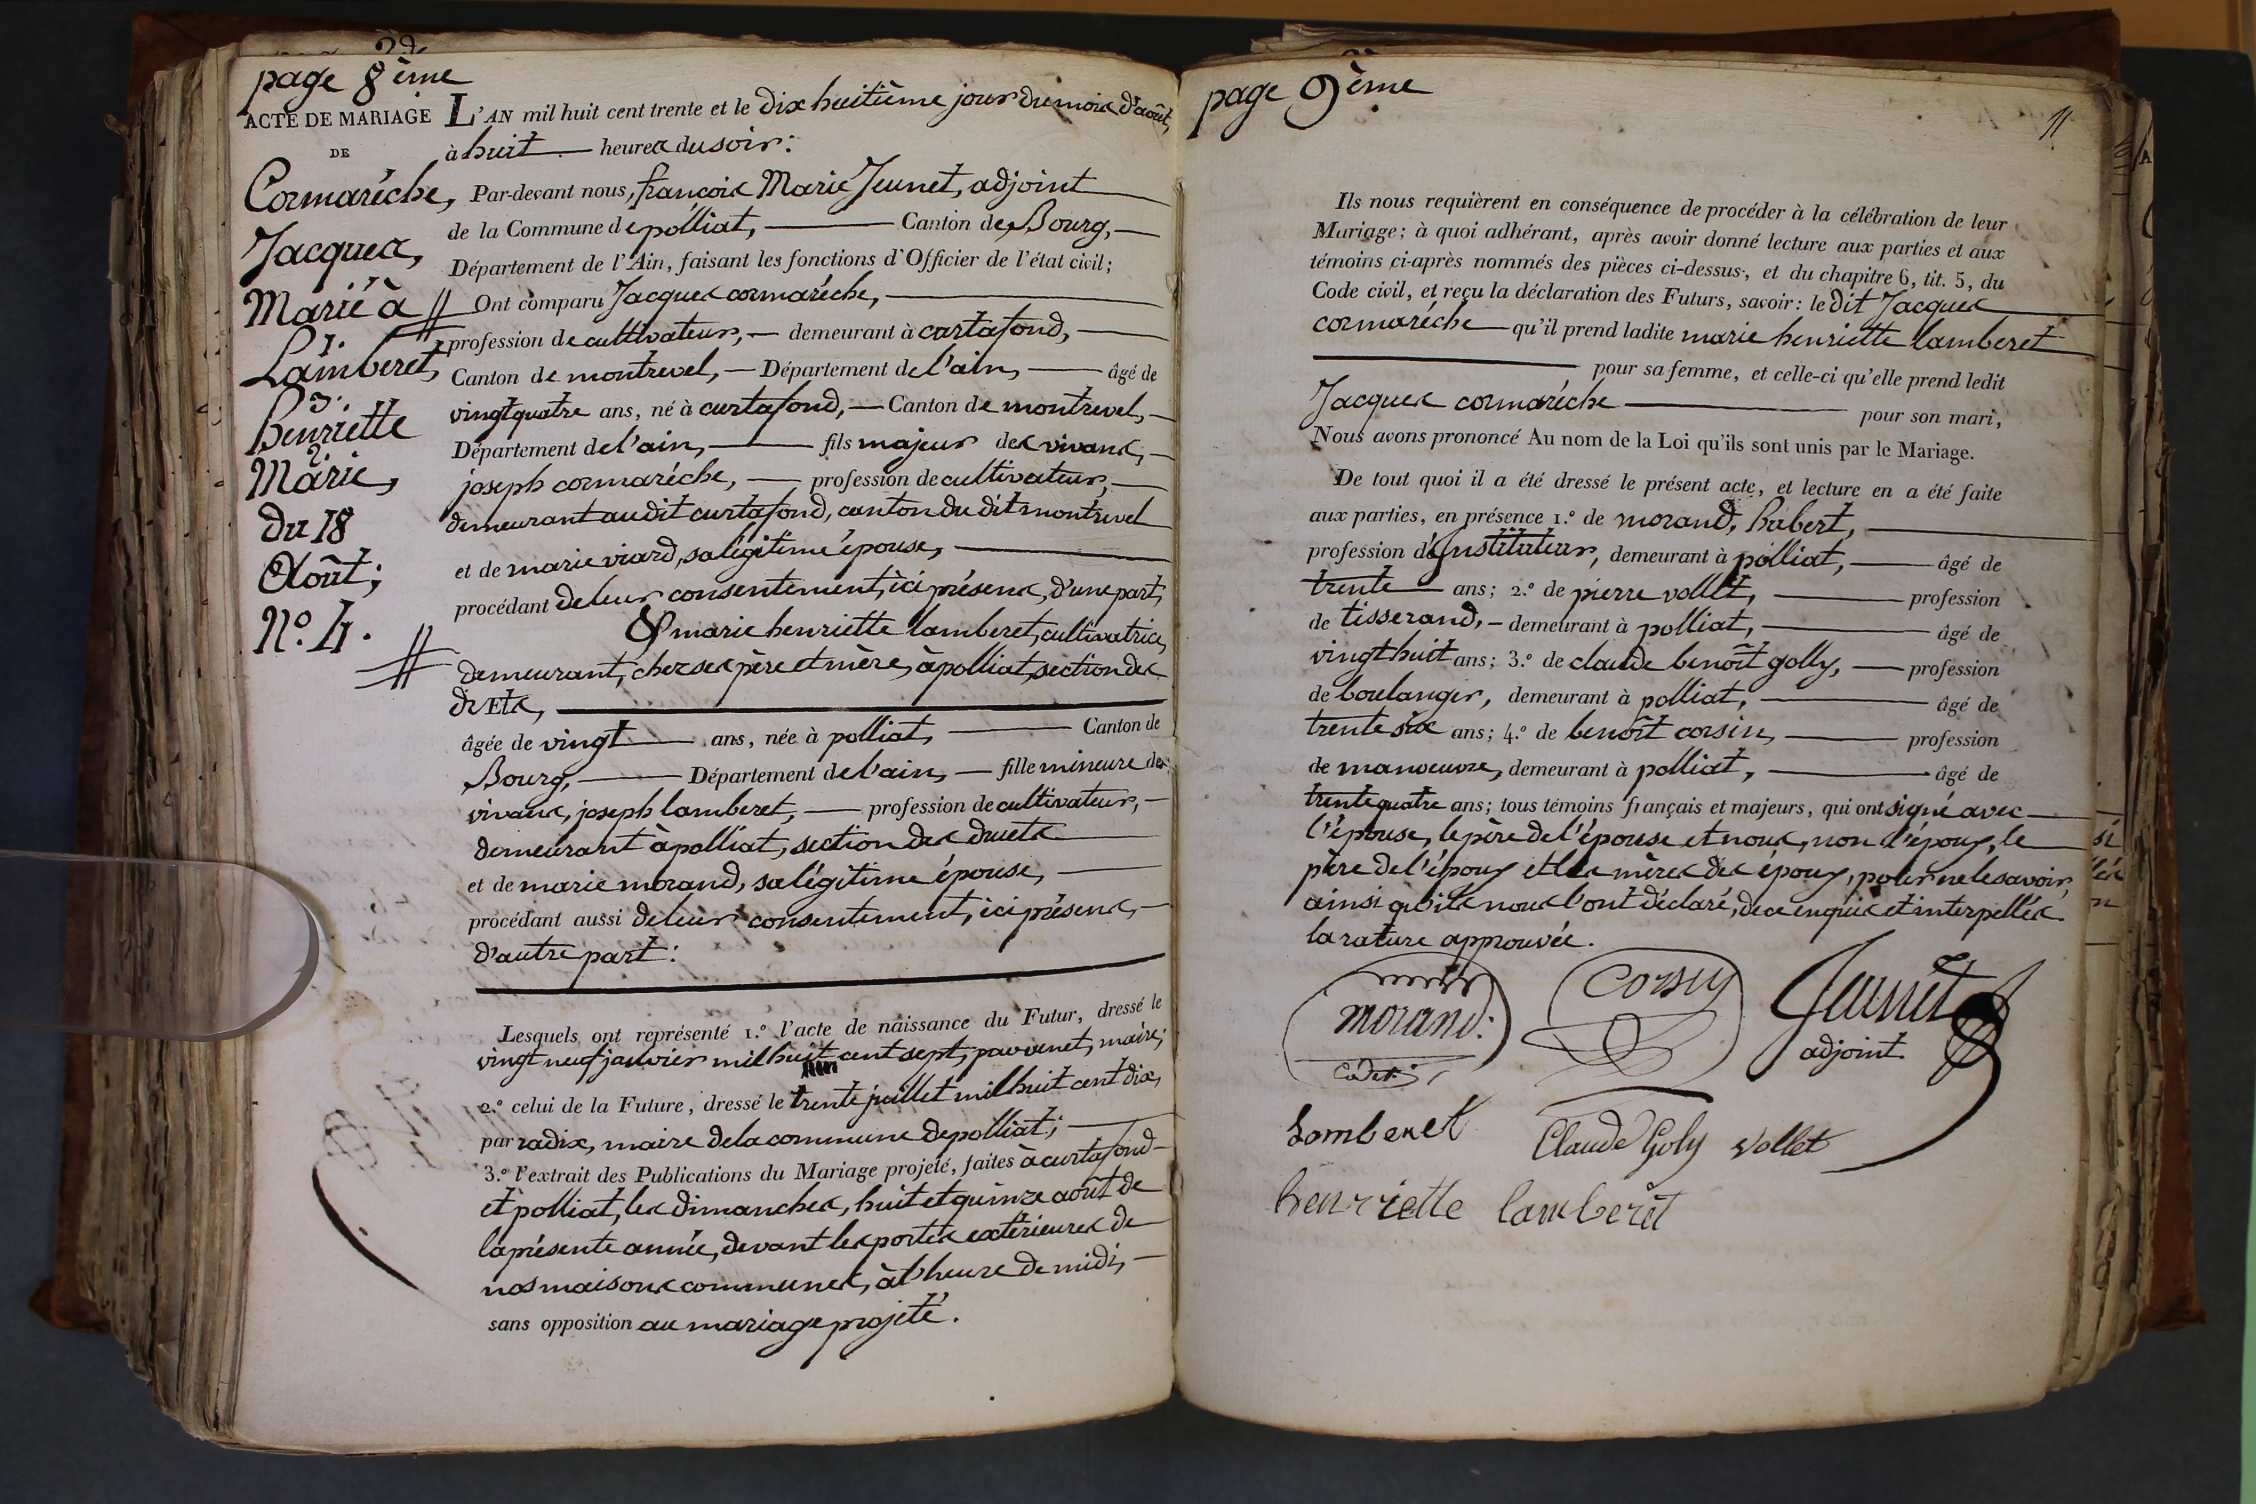 page 8ème
ACTE DE MARIAGE
DE
Cormarêche,
Jacques,
Marié à
1.
Lamberet,
3.
henriette
2.
Marie,
du 18
Août;
N.º 4.
L'AN mil huit cent trente et le dix huitième jour du mois d'août,
à huit heures du soir:
Par-devant nous, francois Marie Jeunet, adjoint
de la Commune de polliat, Canton de Bourg,
Département de l'Ain, faisant les fonctions d'Officier de l'état civil;
Ont comparu Jacques cormarêche,
profession de cultivateur, demeurant à curtafond,
Canton de montrevel, Département de l'ain, âgé de
vingtquatre ans, né à curtafond, Canton de montrevel,
Département de l'ain, fils majeur des vivans,
joseph cormarêche, profession de cultivateur,
demeurant audit curtafond, canton du dit montrevel
et de marie viard, sa légitime épouse,
procédant de leur consentement, ici présens, d'une part,
& marie henriette lamberet, cultivatrice,
demeurant, chez ses père et mère, à polliat, section des
druets,
âgée de vingt ans, née à polliat, Canton de
Bourg, Département de l'ain, fille mineure des
vivans, joseph lamberet, profession de cultivateur,
demeurant à polliat, section des druets
et de marie morand, sa légitime épouse,
procédant aussi de leur consentement, ici présens,
d'autre part:
Lesquels ont représenté 1.º l'acte de naissance du Futur, dressé le
vingt neuf janvier mil huit cent sept, par venet, maire;
2.º celui de la Future, dressé le trente juillet mil huit cent dix,
par radix, maire de la commune de polliat;
3.º l'extrait des Publications du Mariage projeté, faites à curtafond
et polliat, les dimanches, huit et quinze août de
la présente année, devant les portes extérieures de
nos maisons communes, à l'heure de midi,
sans opposition au mariage projeté.
page 9ème
11
Ils nous requièrent en conséquence de procéder à la célébration de leur
Mariage; à quoi adhérant, après avoir donné lecture aux parties et aux
témoins ci-après nommés des pièces ci-dessus, et du chapitre 6, tit. 5, du
Code civil, et reçu la déclaration des Futurs, savoir: le dit Jacques
cormarêche qu'il prend ladite marie henriette lamberet
pour sa femme, et celle-ci qu'elle prend ledit
Jacques cormarêche pour son mari,
Nous avons prononcé Au nom de la Loi qu'ils sont unis par le Mariage.
De tout quoi il a été dressé le présent acte, et lecture en a été faite
aux parties, en présence 1.º de morand, habert,
profession d'Instituteur, demeurant à polliat, âgé de
trente ans; 2.º de pierre vollet, profession
de tisserand, demeurant à polliat, âgé de
vingthuit ans; 3.º de claude benoît golly, profession
de boulanger, demeurant à polliat, âgé de
trente six ans; 4.º de benoît corsin, profession
de manoeuvre, demeurant à polliat, âgé de
trentequatre ans; tous témoins français et majeurs, qui ont signé avec
l'épouse, le père de l'épouse et nous, non l'époux, le
père de l'époux et les mères des époux, pour ne le savoir,
ainsi qu'ils nous l'ont déclaré, de ce enquis et interpellés.
la rature approuvée.
morand.
cadet
Corsin
Jeunet
adjoint.
Lamberet
Claude Goly
Vollet
henriette lamberet